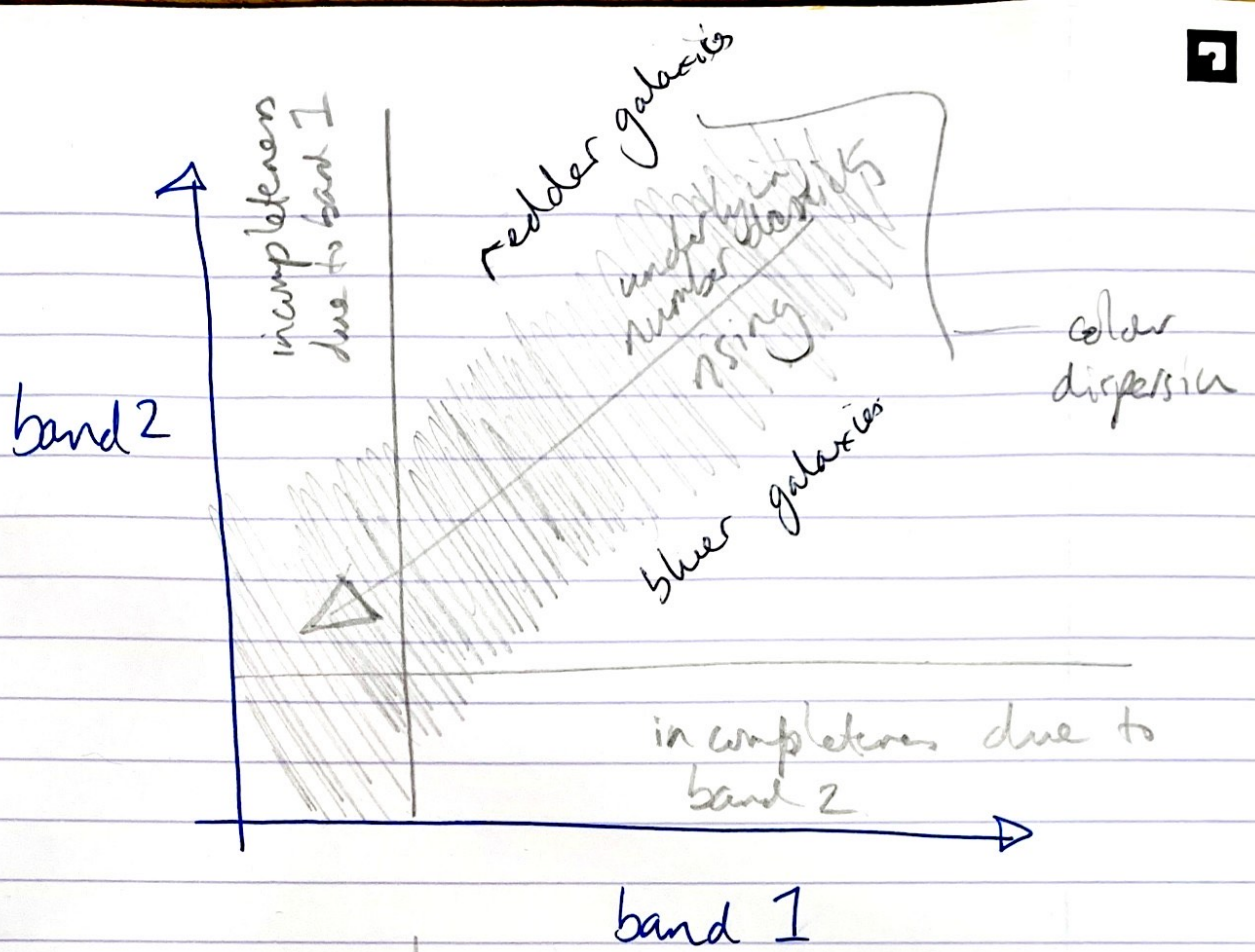 incompleteness
due to band 1
redder galaxies
underlying
number density
rising
colour
dispersion
band 2
bluer galaxies
incompleteness due to
band 2
band 1